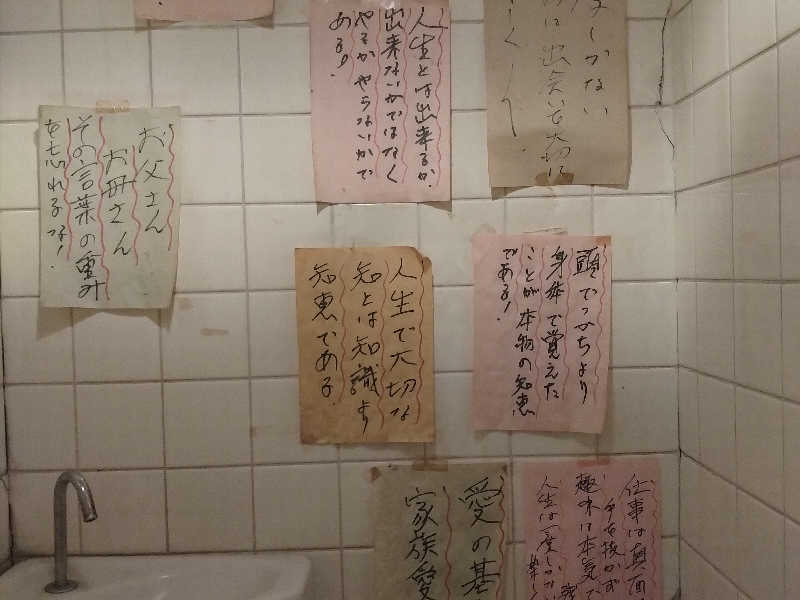 人生とは出来るか
出来ないかではなく
やるかやらないかで
ある!
はしかない
出会いを大切に
お父さん
お母さん
その言葉の重み
を忘れるな!
人生で大切な
知とは知識より
知恵である
頭でっかちより
身体で覚えた
ことが本物の知恵
である!
愛の基
家族愛
仕事は真面
手を抜かず
趣味は本気で
人生は一度しかない